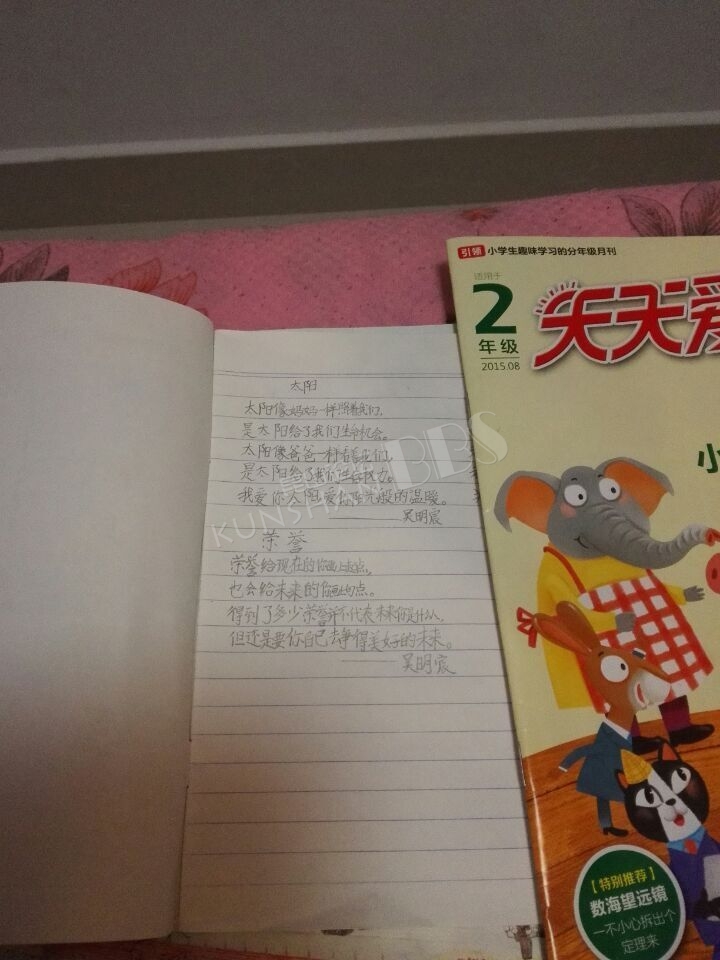 太阳
太阳像妈妈一样照着我们,
是太阳给了我们生命机会。
太阳像爸爸一样看着我们,
是太阳给了我们生存权力。
我爱你太阳,爱你阳光般的温暖。
——吴明宸
荣誉
荣誉给现在的你画上点,
也会给未来的你画上点。
得到了多少荣誉并不代表未来你是什么,
但还是要你自己去争得美好的未来。
——吴明宸
KUNSHAN BBS
引领 小学生趣味学习的分年级月刊
适用于
2
年级
2015.08
天天爱
小
【特别推荐】
数海望远镜
一不小心拆出个
定理来